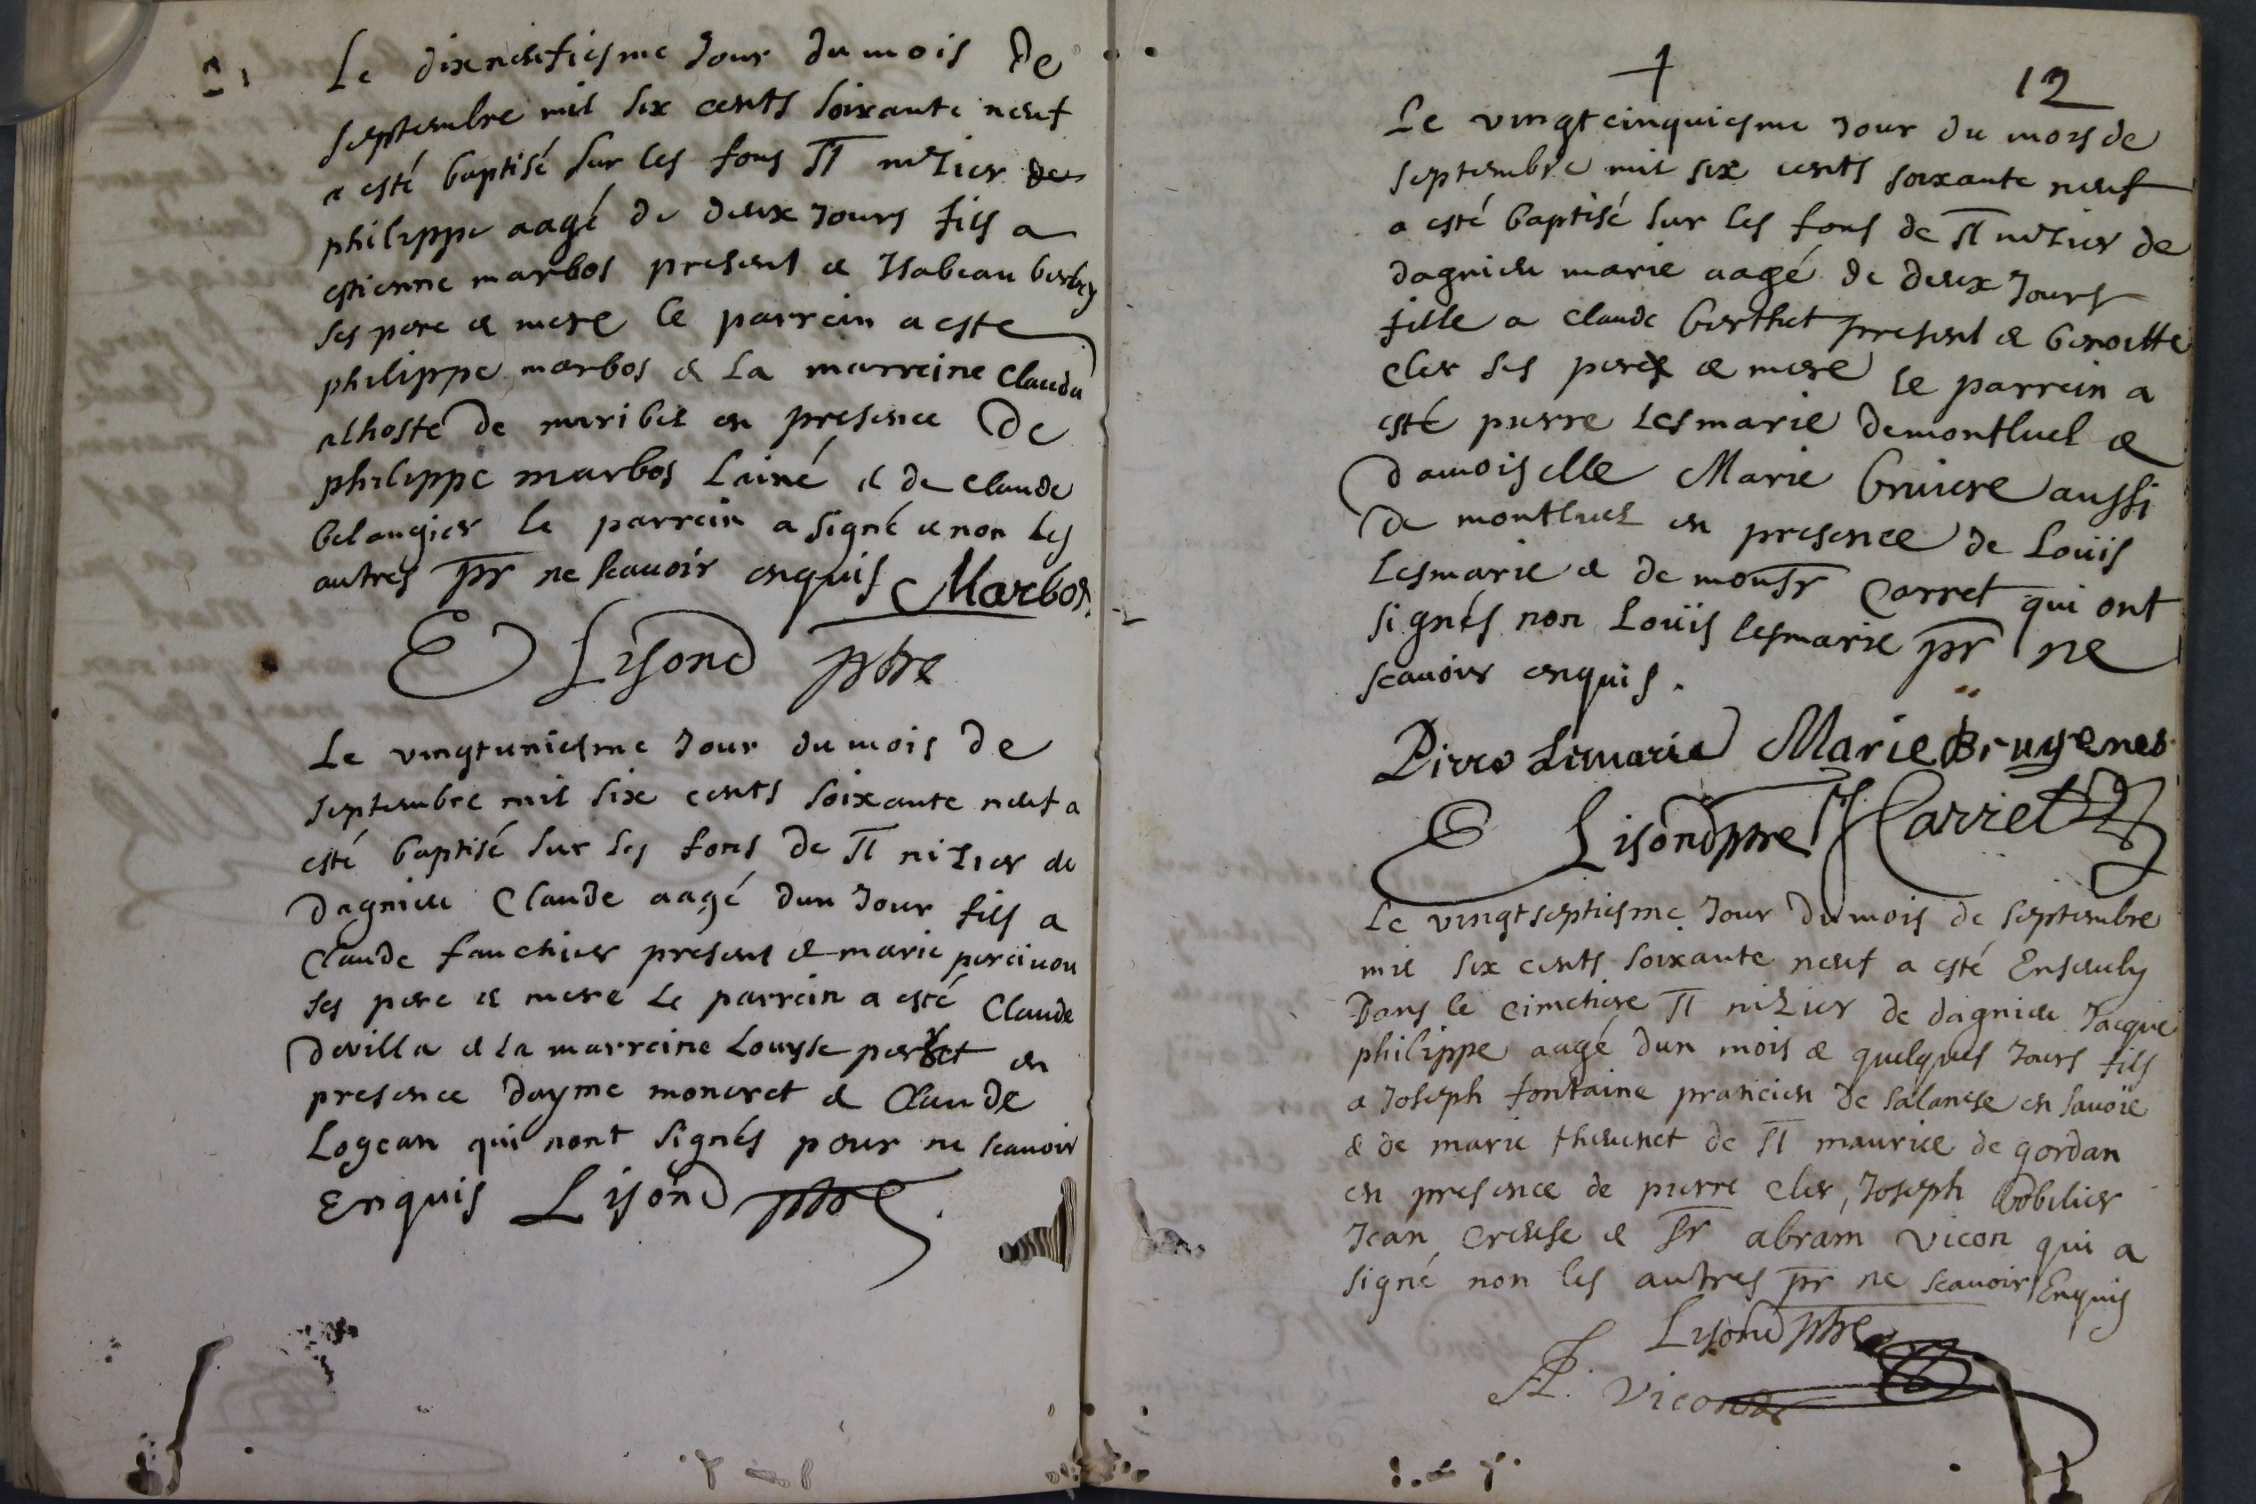 Le dixneufiesme Jour du mois De
septembre mil six cents soixante neuf
a esté baptisé sur les fons St nizier de
philippe aagé de deux Jours fils a
estienne marbos present & Isabeau
ses pere & mere le parrein a este
philippe marbos & La marreine Clauda
alhoste de miribel en presence De
philippe marbos Lainé & de claude
belangier le parrein a signé & non les
autres pr ne scauoir enquis Marbos
Lisond ptre
Le vingtuniesme Jour du mois de
septembre mil six cents soixante neuf a
esté baptisé sur les fons de St nizier de
dagnieu Claude aagé dun Jour fils a
Claude fauchier present & marie
ses pere & mere Le parrein a esté Claude
devilla & la marreine Louyse en
presence dayme moneret & Claude
Logean qui nont signés pour ne scauoir
Enquis Lisond ptre
12
Le vingtcinquiesme Jour du mois de
septembre mil six cents soixante neuf
a esté baptisé sur les fons de St nizier de
dagnieu marie aagé de deux Jours
fille a claude berthet present & benoitte
cler ses pere & mere le parrein a
esté pierre Lesmarie demontluel &
damoiselle Marie bruiere aussi
De montluel en presence de Loüis
Lesmarie & de monsr Carret qui ont
signés non Loüis lesmarie pr ne
scauoir enquis.
Pirre Limarie Marie Bruyeres
Lisond ptre Carriet
Le vingtseptiesme Jour du mois de septembre
mil six cents soixante neuf a esté Enseuely
Dans le cimetiere St nizier de dagnieu Jacque
philippe aagé dun mois & quelques Jours fils
a Joseph fontaine praticien de salanese en sauoie
& de marie theuenet de St maurice de gordan
en presence de pierre cler, Joseph bobilier
Jean Creuse & Sr abram vicon qui a
signé non les autres pr ne scauoir Enquis
Lisond ptre
A. Vicon